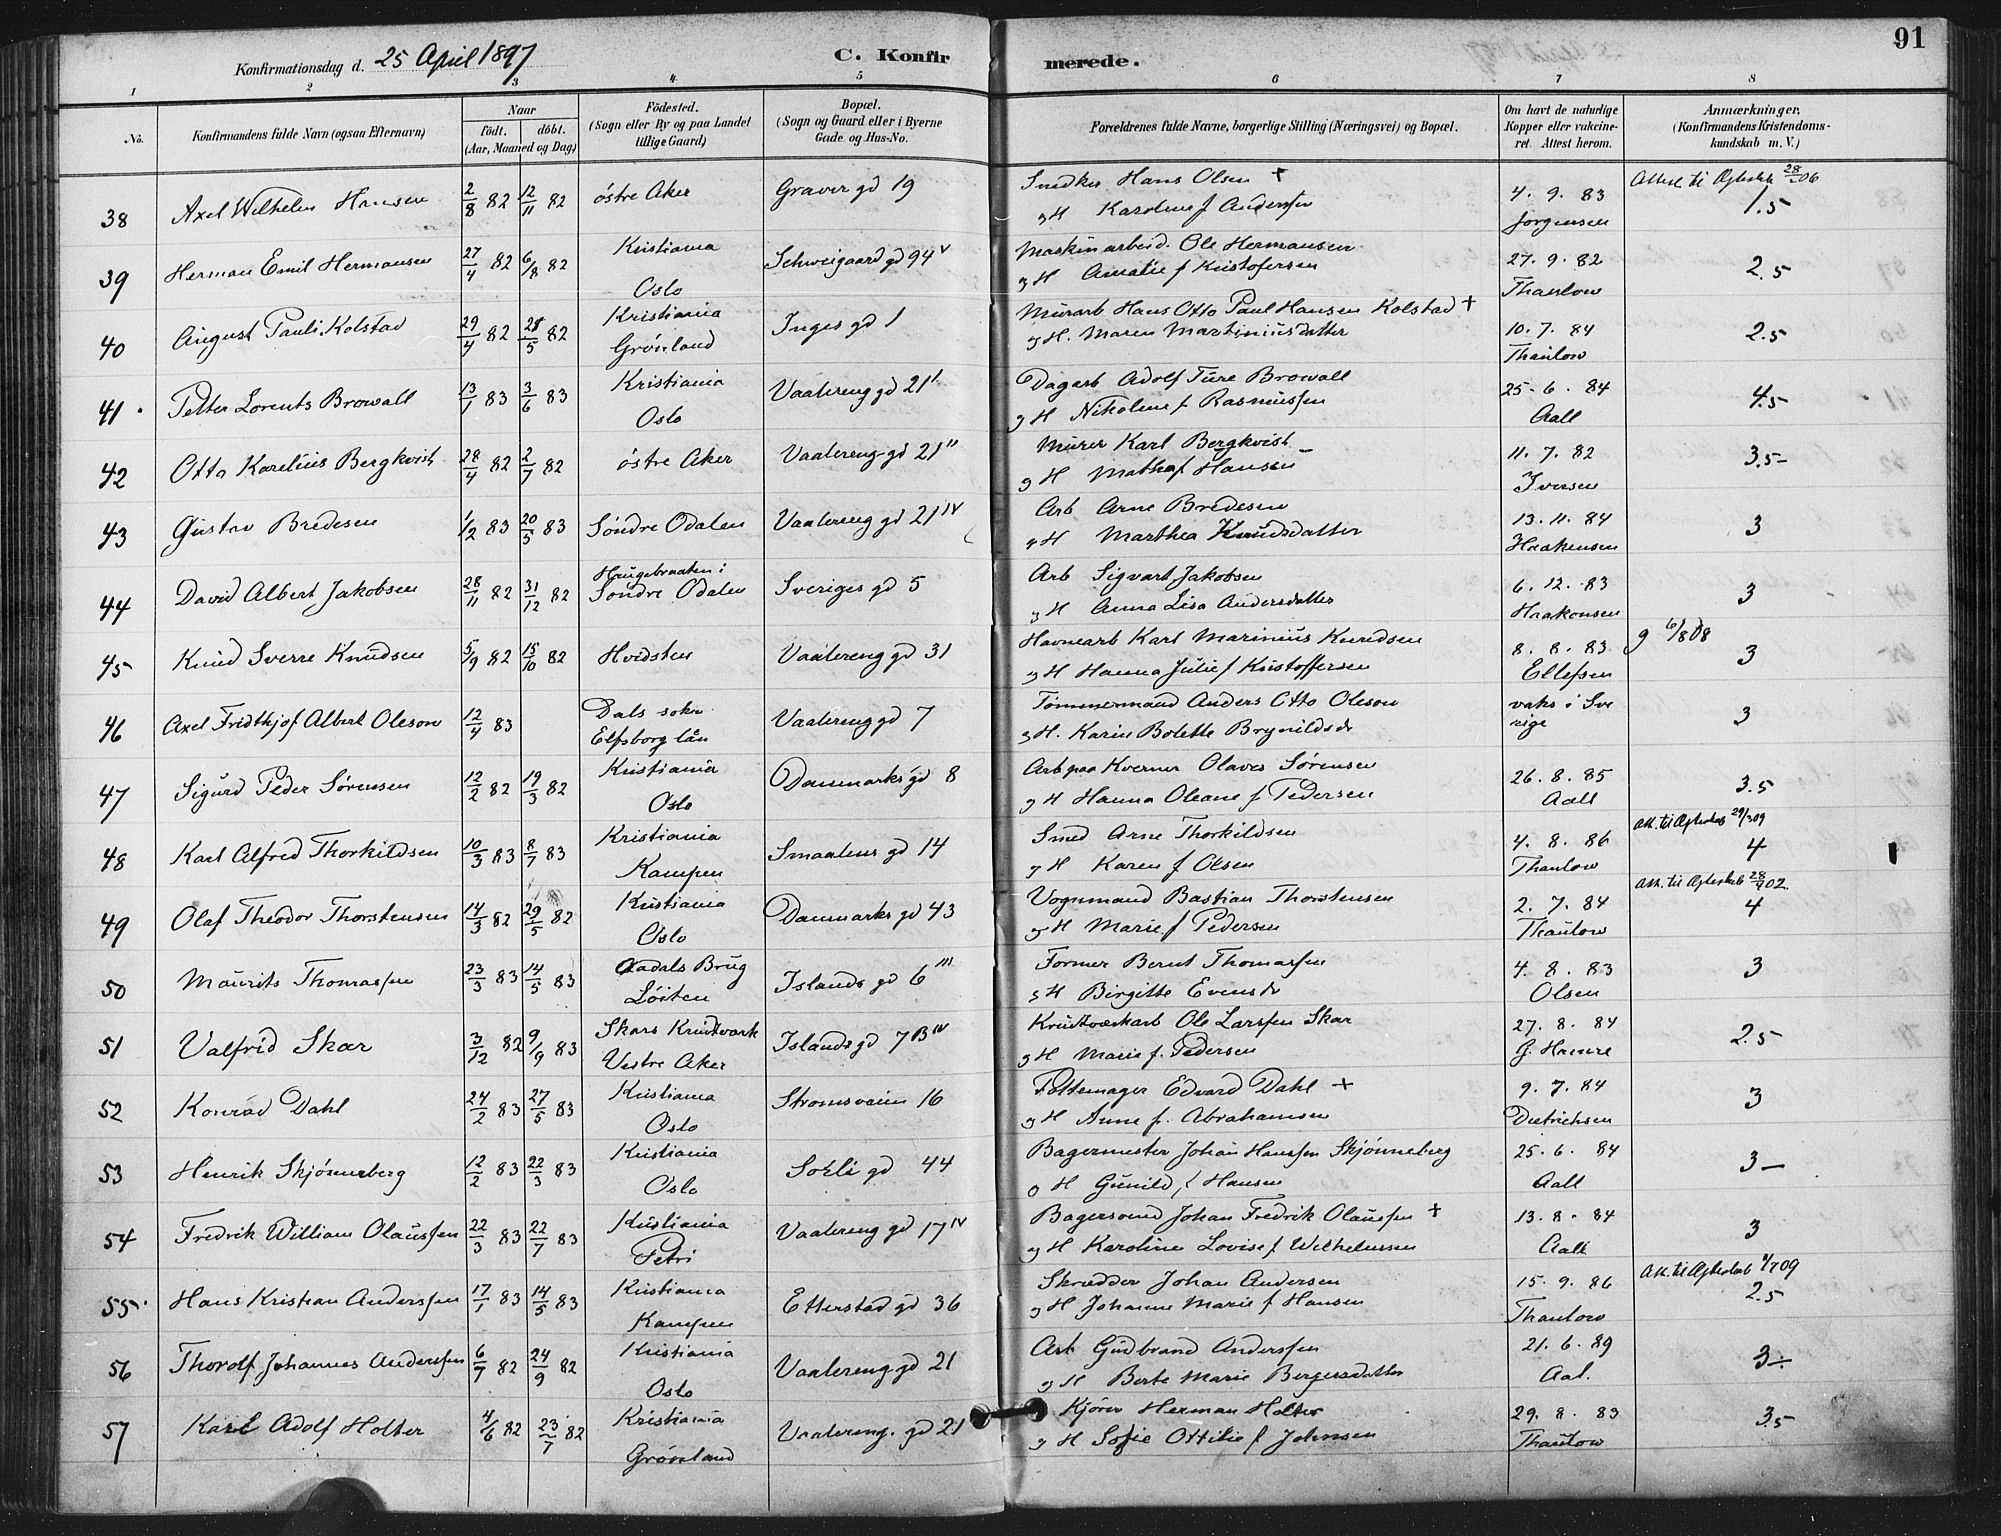 91
Konfirmationsdag d. 25 April 1897
C. Konfirmerede.
1 2 3 4 5 6 7 8
No.
Konfirmandens fulde Navn (ogsaa Efternavn)
Naar
födt. döbt.
(Aar, Maaned og Dag)
Födested.
(Sogn eller By og paa Landet
tillige Gaard)
Bopæl.
(Sogn og Gaard eller i Byerne
Gade og Hus-No.
Forældrenes fulde Navne, borgerlige Stilling (Næringsvei) og Bopæl.
Om havt de naturlige
Kopper eller vakcine-
ret. Attest herom.
Anmærkninger,
(Konfirmandens Kristendoms-
kundskab m. V.)
38 Axel Wilhelm Hansen 2/8 82 12/11 82 östre Aker Graver gd 19 Snedker Hans Olsen +
og H Karoline f Anderssen
4. 9. 83 Jorgensen
1.5
39 Herman Emil Hermansen 27/4 82 6/8 82 Kristiania Oslo Schweigaard gd 94 v Maskinarbeid. Ole Hermansen
og H Amalie f Kristofersen
27. 9. 82 Thaulow
2.5
40 August Pauli Kolstad 29/4 82 28/5 82 Kristiania Grönland Inges gd 1 Murarb Hans Otto Paul Hansen Kolstad +
og H. Maren Martiniusdatter
10. 7. 84 Thaulow
2.5
41 Petter Lorents Browall 13/1 83 3/6 83 Kristiania Oslo Vaalereng gd 21 I Dagarb Adolf Ture Browall
og H Nikoline f Rasmussen
25. 6. 84 Aall
4.5
42 Otto Karelius Bergkvist 28/4 82 2/7 82 östre Aker Vaalereng gd 21 II Murer Karl Bergkvist
og H Mathea f Hansen
11. 7. 82 Iversen
3.5-
43 Gustav Bredesen 1/2 83 20/5 83 Söndre Odalen Vaalereng gd 21 IV Arb Arne Bredesen
og H Marthea Knudsdatter
13. 11. 84 Haakensen
3
44 David Albert Jakobsen 28/11 82 31/12 82 Haugebraaten i Söndre Odalen Sveriges gd 5 Arb Sigvart Jakobsen
og H Anna Lisa Andersdatter
6. 12. 83 Haakonsen
3
45 Knud Sverre Knudsen 5/9 82 15/10 82 Hvidsten Vaalereng gd 31 Havnearb Karl Marinius Knudsen
og H Hanna Julie f Kristoffersen
8. 8. 83 Ellefsen
g 6/8 08
3
46 Axel Fridthjof Albert Oleson 12/4 83 Dals sokn Elfsborg län Vaalereng gd 7 Tömmermand Anders Otto Oleson
og H. Karin Bolette Brynildsdr
vaks i Sve
rige
3
47 Sigurd Peder Sørensen 12/2 82 19/3 82 Kristiania Oslo Danmarks gd 8 Arb paa Kverner Olaves Sørensen
og H Hanna Oleane f Pedersen
26. 8. 85 Aall
3.5
48 Karl Alfred Thorkildsen 10/3 83 8/7 83 Kristiania Kampen Smaalens gd 14 Smed Arne Thorkildsen
og H Karen f Olsen
4. 8. 86 Thaulow
4
49 Olaf Theodor Thorstensen 14/3 82 29/5 82 Kristiania Oslo Danmarks gd 43 Vognmand Bastian Thorstensen
og H Marie f Pedersen
2. 7. 84 Thaulow
Att. til Ægteskab 28/9 02
4
50 Maurits Thomassen 23/3 83 14/5 83 Aadals Brug Löiten Islands gd 6 III Former Bernt Thomassen
og H Birgitte Evensdr
4. 8. 83 Olsen
3
51 Valfrid Skar 3/12 82 9/9 83 Skars Krudtværk Vestre Aker Islands gd 7 B IV Krudtværkarb Ole Larssen Skar
og H Marie f. Pedersen
27. 8. 84
2.5
52 Konrad Dahl 24/2 83 27/5 83 Kristiania Oslo Strømsveien 16 Pottemager Edvard Dahl +
og H Anne f. Abrahamsen
9. 7. 84 Dietrichsen
3
53 Henrik Skjönneberg 12/2 83 22/3 83 Kristiania Oslo Sörli gd 44 Bagermester Johan Hanssen Skjönneberg
og H Gunild f Hansen
25. 6. 84 Aall
3-
54 Fredrik William Olaussen 22/3 83 22/7 83 Kristiania Petri Vaalereng gd 17 IV Bagersvend Johan Fredrik Olaussen +
og H Karoline Lovise f Wilhelmsen
13. 8. 84 Aall
3
55 Hans Kristian Anderssen 17/1 83 14/5 83 Kristiania Kampen Etterstad gd 36 Skrædder Johan Andersen
og H Johanne Marie f Hansen
15. 9. 86 Thaulow
2.5
56 Thorolf Johannes Anderssen 6/7 82 24/9 82 Kristiania Oslo Vaalereng gd 21 Arb Gudbrand Anderssen
og H Berte Marie Bergersdatter
21. 6. 89 Aal.
3÷
57 Karl Adolf Holter 4/6 82 23/7 82 Kristiania Grønland Vaalereng. gd 21 Kjörer Herman Holter
og H Sofie Ottilie f Johnsen
29. 8. 83 Thaulow
3.5